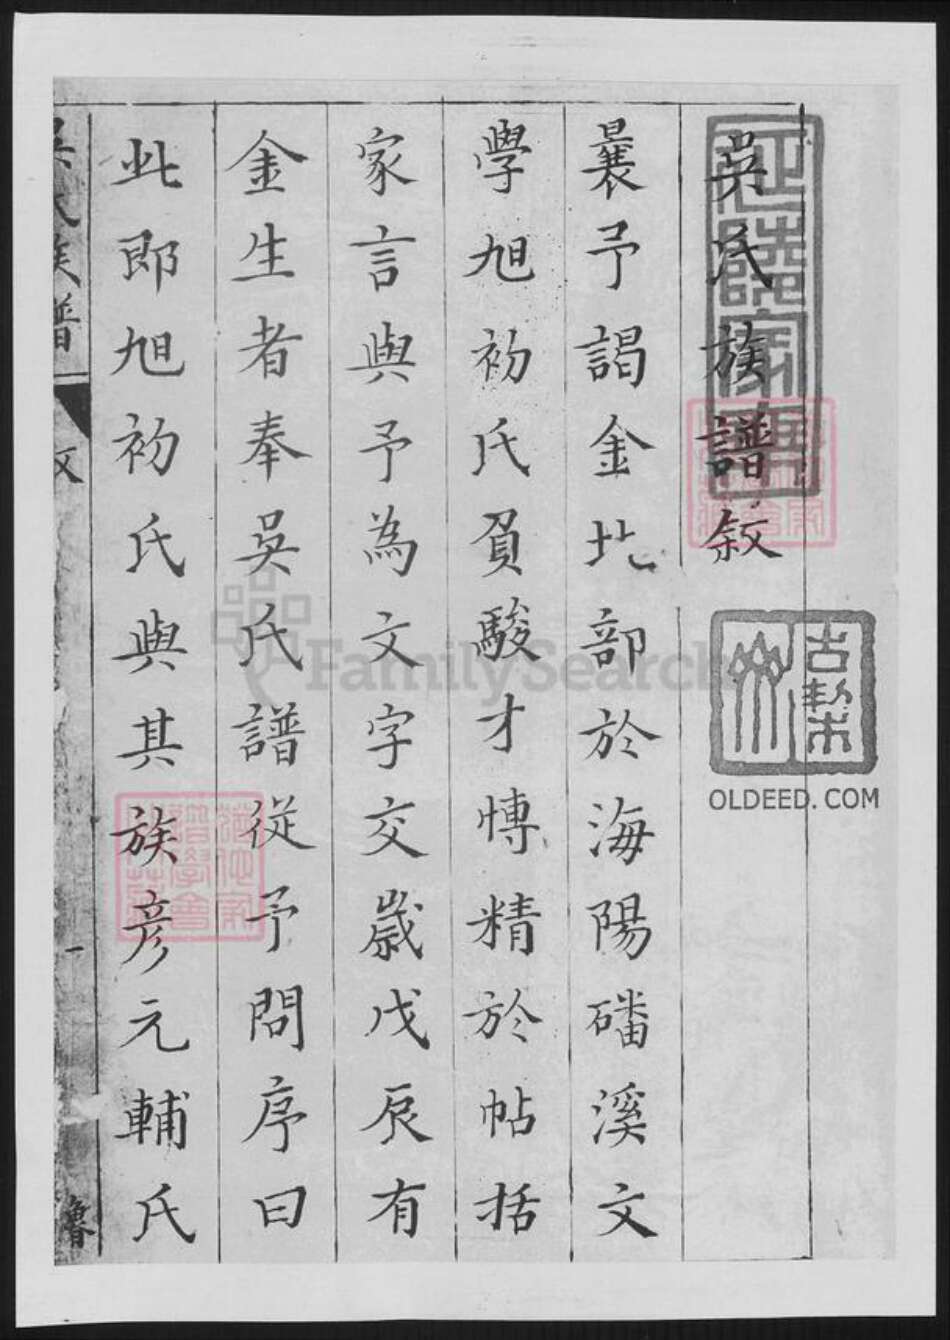 吳氏族譜敘
曩予謁金比部於海陽磻溪文
學旭初氏負駿才慱精於帖括
家言與予為文字交歲戊辰有
金生者奉吳氏譜從予問序曰
此即旭初氏與其族彥元輔氏
吳氏族譜
敘
一
古黎
OLDEED.COM
FamilySearch